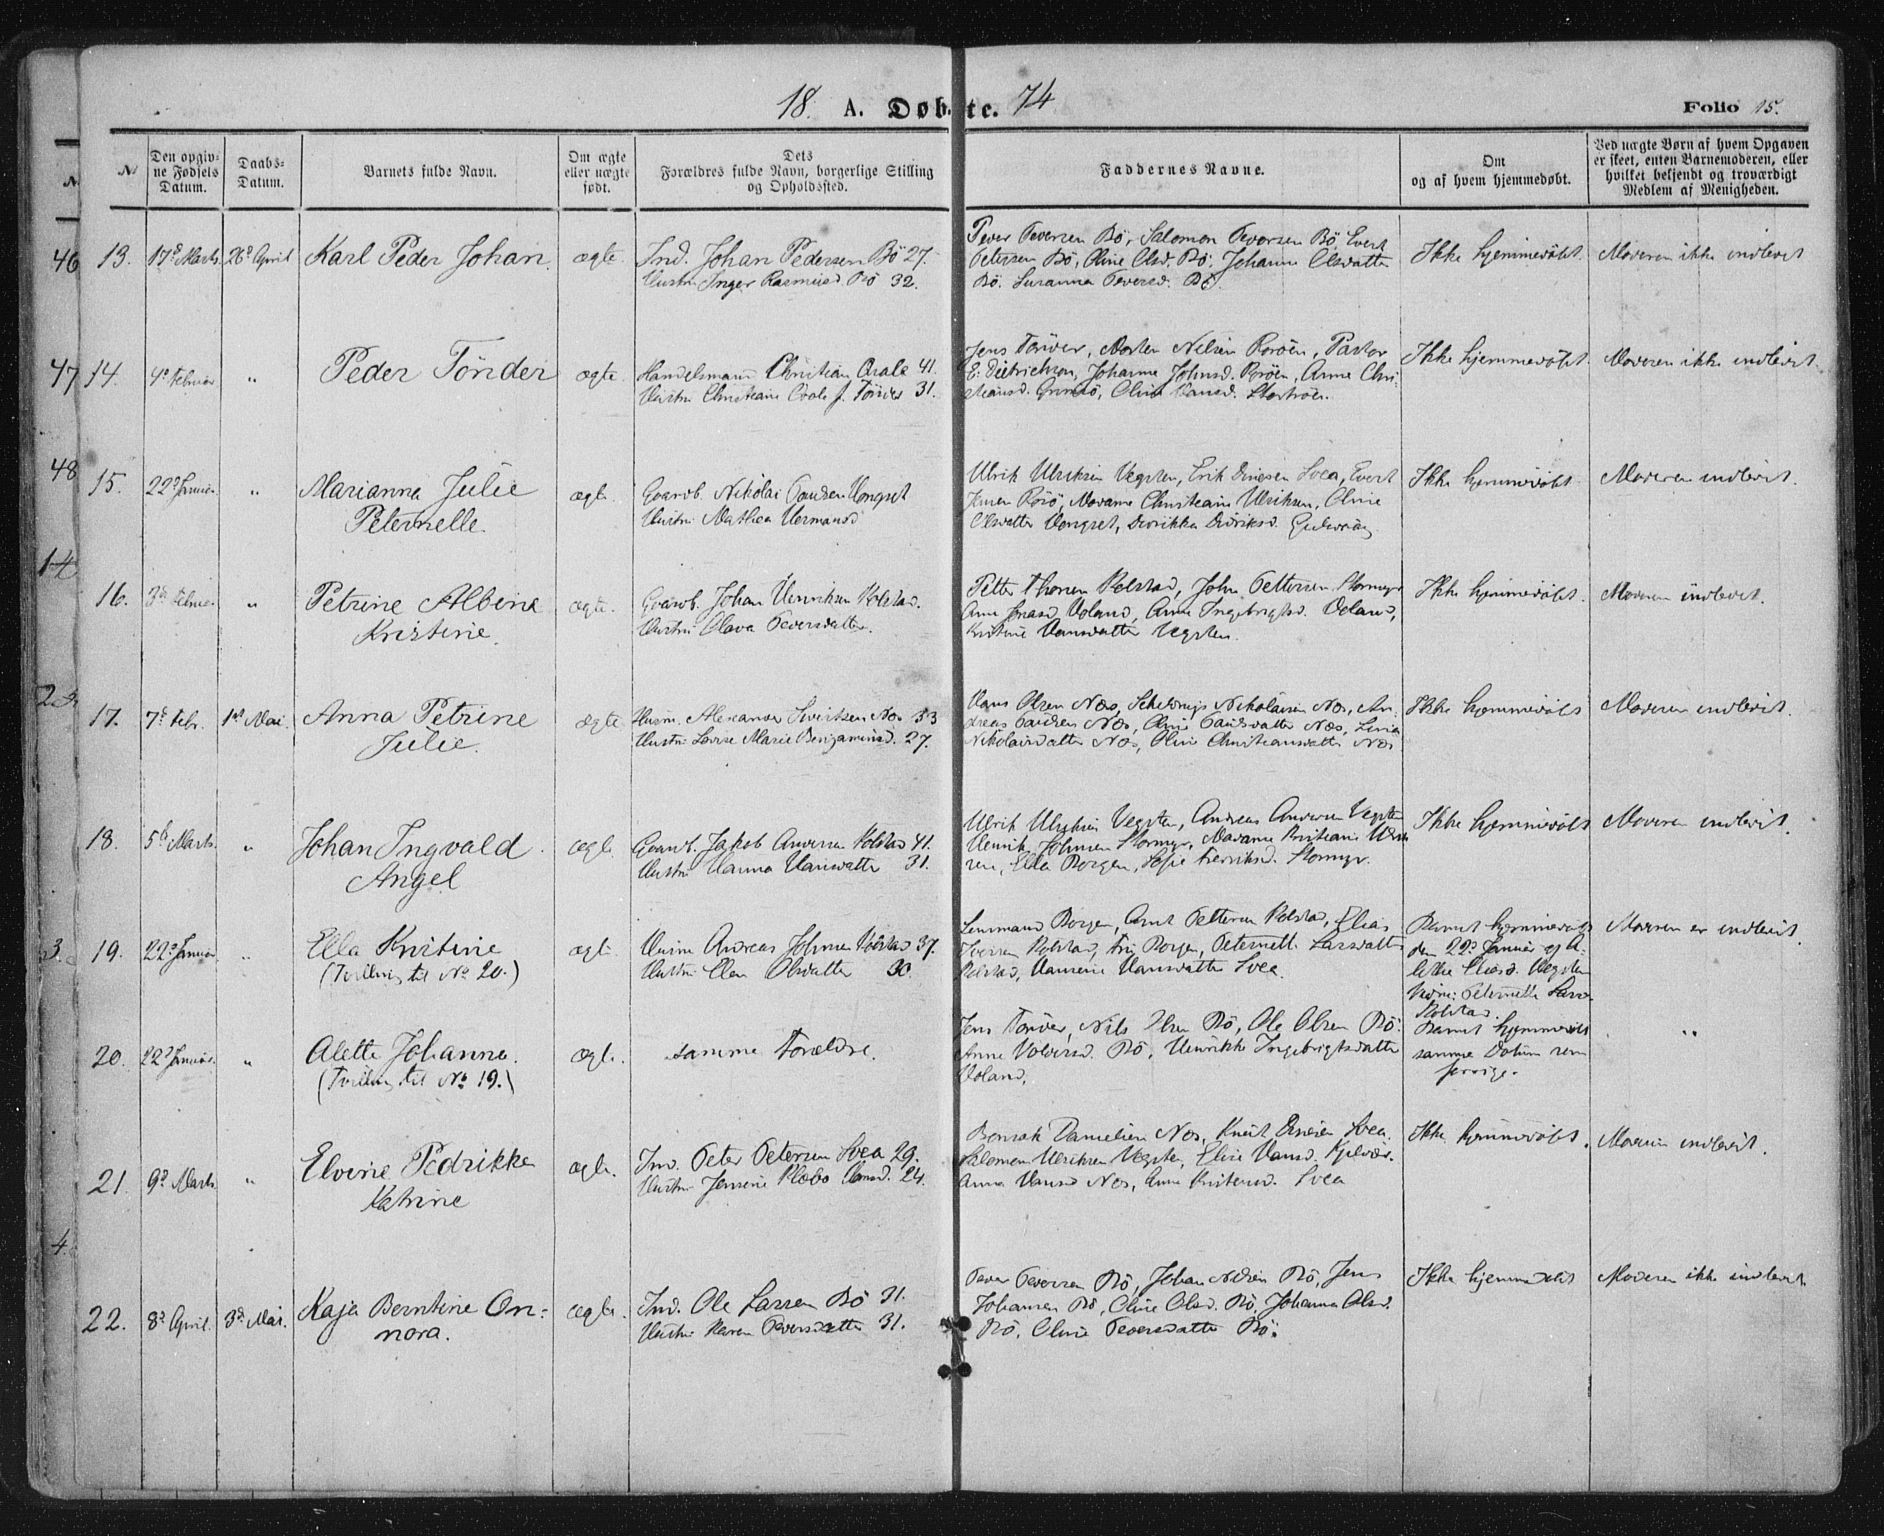 18 A. Døbte. 74
Folio 15.
№
Den opgiv-
ne Fødsels
Datum.
Daabs-
Datum.
Barnets fulde Navn.
Om ægte
eller uægte
født.
Dets
Forældres fulde Navn, borgerlige Stilling
og Opholdssted.
Faddernes Navne.
Om
og af hvem hjemmedøbt.
Ved uægte Børn af hvem Opgaven
er skeet, enten Barnemoderen, eller
hvilket bekjendt og troværdigt
Medlem af Menigheden.
46
13. 17d Marts 26d April Karl Peder Johan ægte. Ind. Johan Pedersen Bö 27.
Hustru Inger Rasmusd. Bö 32.
Peder Pedersen Bö, Salomon Pedersen Bö, Evert
Petersen Bö, Oline Olsd. Bö, Johanna Olsdatter
Bö. Susanna Pedersd. Bö.
Ikke hjemmedöbt Moderen ikke indlevet
47
14. 4d Februar " Peder Tönder ægte. Handelsmand Christian Qvale 41.
Hustru Christiane Qvale f. Tönder 31.
Jens Tönder, Morten Nelsen Röröen, Pastor
E. Dietrichson, Johanne Johnsd. Röröen, Anne Chri-
stiansd. Grimsö, Oline Hansd.
Ikke hjemmedöbt. Moderen ikke indlevet.
48
15. 22d Januar " Marianna Julie
Peternelle.
ægte. Gaardb. Nikolai Paulsen Hongset
Hustru Mathea Hermansd
Ulrik Ulriksen Vegsten, Erik Enersen Svea, Evert
Jensen Rörö, Madame Christiane Ulriksen, Oline
Olsdatter Hongset, Didrikka Didriksd.
Ikke hjemmedöbt. Moderen indlevet.
14
16. 3die Februar " Petrine Albine
Kristine.
ægte. Gaardb. Johan Henriksen Kolstad.
Hustru Olava Pedersdatter.
Petter Thorsen Kolstad, John Pettersen Stormyr
Anne Jonasd Voland, Anne Ingebrigtsd. Voland,
Kristine Hansdatter Vegsten.
Ikke hjemmedöbt. Moderen indlevet.
2
17. 7d Febr. 1ste Mai. Anna Petrine
Julie.
ægte Husm. Alexander Sivertsen Næs 33
Hustru Lovise Marie Benjaminsd. 27.
Hans Olsen Næs, Nikolaisen Næs, An-
dreas Paulsen Næs, Oline Paulsdatter Næs, Lina
Nikolaisdatter Næs, Oline Christiansdatter Næs
Ikke hjemmedöbt Moderen indlevet.
18. 5te Marts " Johan Ingvald
Angel
ægte. Gaardb. Jakob Andersen Kolstad 41.
Hustru Hanna Hansdatter 31.
Ulrik Ulriksen Vegsten, Andreas Andersen Vegsten
Henrik Johnsen Stormyr, Madame Kristiane Ulrik-
sen, Ella Borgen, Sofie Fredriksd. Stormyr.
Ikke hjemmedöbt Moderen indlevet.
3.
19. 22d Januar " Ella Kristine
(Tvilling til No 20.)
ægte. Husm Andreas Johnsen Kolstad 37.
Hustru Elen Olsdatter 30.
Lensmand Borgen, Arnt Pettersen Kolstad, Elias
Iversen Kolstad, Borgen, Peternelle Larsdatter
Kolstad, Hansine Hansdatter Svea.
Barnet hjemmedöbt
den 22d Januar af A-
lethe Eliasd. Vegsten
Vidne: Peternelle Larsd.
Kolstad.
Moderen er indlevet.
20. 22d Januar. " Alette Johanna.
(Tvilling til No 19.)
ægte. samme Forældre.
Jens Tönder, Nils Olsen Bö, Ole Olsen Bö.
Anne Bö, Henrikke Ingebrigtsdatter
Voland,
Barnet hjemmedöbt
samme Datum som
forrige.
"
21. 9d Marts " Elverie Pedrikke
Katrine
ægte. Ind. Peter Petersen Svea 29.
Hustru Jensine Hansd. 24.
Bonsak Danielsen Næs, Knut Enersen Svea.
Salomon Ulriksen Vegsten, Elise Hansd. Kjelvær.
Anna Hansd Næs, Anne Kristensd. Svea
Ikke hjemmedöbt. Moderen indlevet.
4.
22. 8d April. 3d Mai. Kaja Berntine On-
nora.
ægte. Ind. Ole Larsen Bö 31.
Hustru Karen Pedersdatter 31.
Peder Pedersen Bö, Johan Nelsen Bö, Jens
Johansen Bö, Oline Olsd. Bö, Johanna Olsd.
Bö. Oline Pedersdatter Bö.
Ikke hjemmedöbt Moderen ikke indlevet